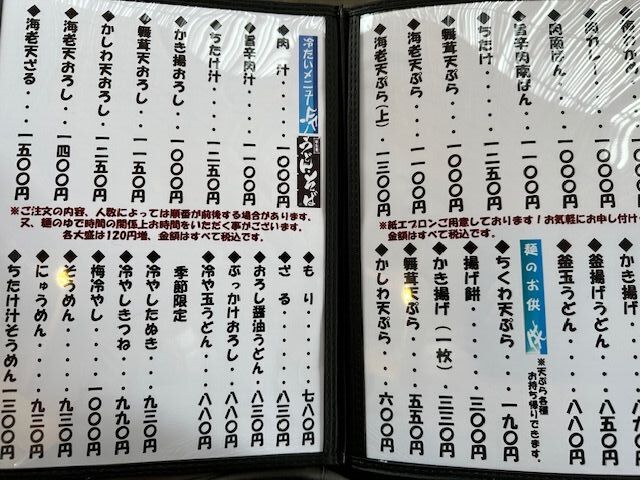 ◆肉南ばん・・・一〇〇〇円
◆旨辛肉南ばん・一一〇〇円
◆ちたけ・・・・一二五〇円
◆舞茸天ぷら・・一〇〇〇円
◆海老天ぷら・・一一〇〇円
◆海老天ぷら(上)・一三〇〇円
※紙エプロンご用意しております！お気軽にお申し付け
金額はすべて税込です。
◆釜揚げうどん・・八五〇円
◆釜玉うどん・・・八八〇円
麺のお供
※天ぷら各種
お持ち帰りできます。
◆ちくわ天ぷら・・・一九〇円
◆揚げ餅・・・・三〇〇円
◆かき揚げ(一枚)・・三三〇円
◆舞茸天ぷら・・・五五〇円
◆かしわ天ぷら・・・六〇〇円
冷たいメニュー
うどん そば
◆肉汁・・・・一〇〇〇円
◆旨辛肉汁・・・一一〇〇円
◆ちたけ汁・・・一二五〇円
◆かき揚おろし・・一〇〇〇円
◆舞茸天おろし・・一一五〇円
◆かしわ天おろし・・一二五〇円
◆海老天おろし・・一四〇〇円
◆海老天ざる・・・一五〇〇円
※ご注文の内容、人数によっては順番が前後する場合があります。
又、麺のゆで時間の関係上お時間をいただく事がございます。
各大盛は120円増、金額はすべて税込です。
◆もり・・・・・七八〇円
◆ざる・・・・・八三〇円
◆おろし醤油うどん・・八三〇円
◆ぶっかけおろし・・八八〇円
◆冷や玉うどん・・・八八〇円
季節限定
◆冷やしたぬき・・・九三〇円
◆冷やしきつね・・・九九〇円
◆梅冷やし・・・一〇〇〇円
◆そうめん・・・・九三〇円
◆にゅうめん・・・九三〇円
◆ちたけ汁そうめん 一三〇〇円